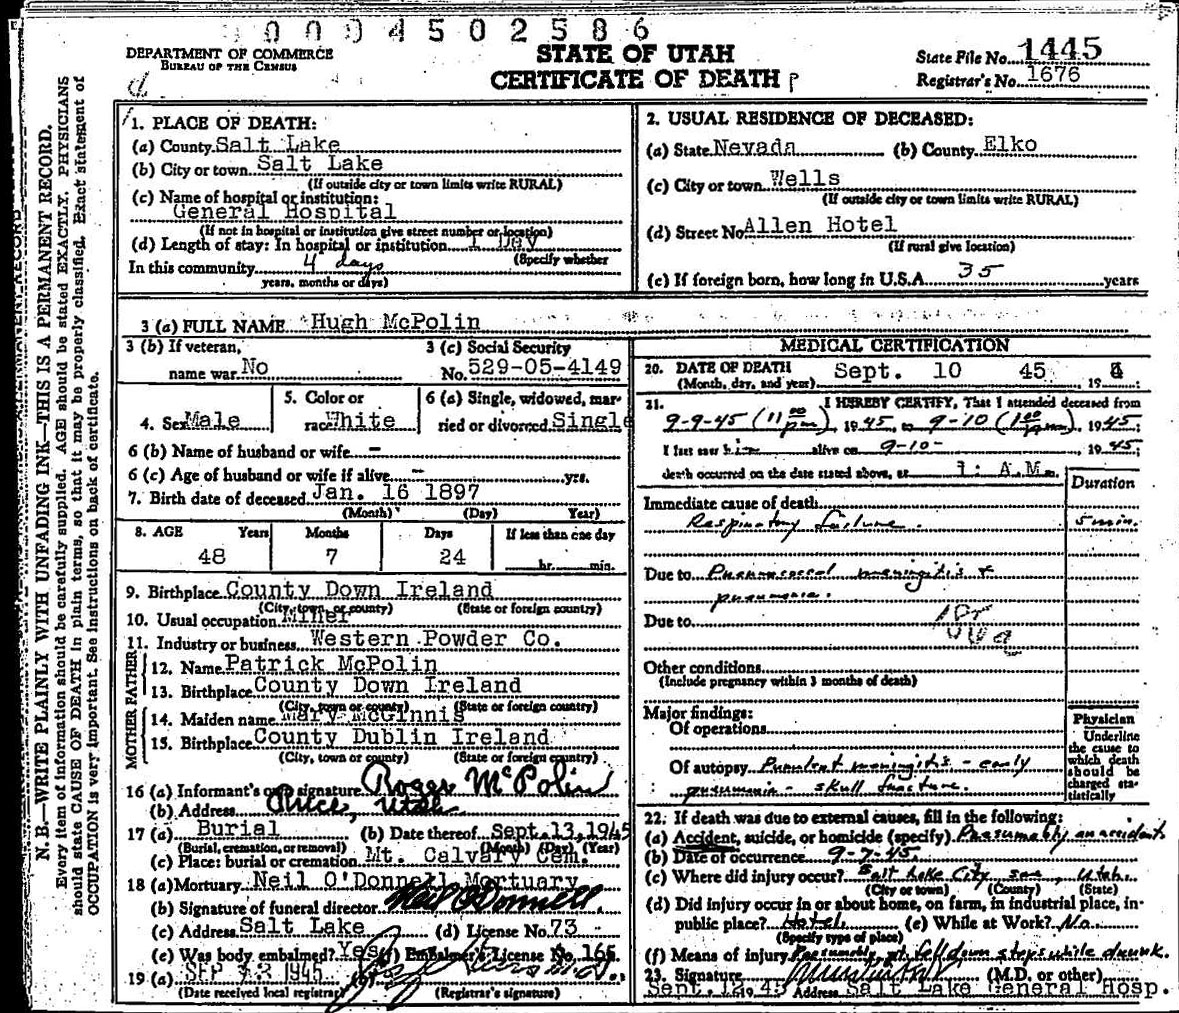 0004502586
DEPARTMENT OF COMMERCE
BUREAU OF THE CENSUS
STATE OF UTAH
CERTIFICATE OF DEATH
State File No. 1445
Registrar's No. 1676
N. B.—WRITE PLAINLY WITH UNFADING INK—THIS IS A PERMANENT RECORD.
Every item of information should be carefully supplied. AGE should be stated EXACTLY. PHYSICIANS
should state CAUSE OF DEATH in plain terms, so that it may be properly classified. Exact statement of
OCCUPATION is very important. See instructions on back of certificate.
1. PLACE OF DEATH:
(a) County Salt Lake
(b) City or town Salt Lake
(If outside city or town limits write RURAL)
(c) Name of hospital or institution:
General Hospital
(If not in hospital or institution give street number or location)
(d) Length of stay: In hospital or institution 1 Day
(Specify whether
In this community 4 days
years, months or days)
2. USUAL RESIDENCE OF DECEASED:
(a) State Nevada (b) County Elko
(c) City or town Wells
(If outside city or town limits write RURAL)
(d) Street No Allen Hotel
(If rural give location)
(e) If foreign born, how long in U.S.A 35 years
3 (a) FULL NAME Hugh McPolin
3 (b) If veteran, name war No
3 (c) Social Security No. 529-05-4149
4. Sex Male
5. Color or race White
6 (a) Single, widowed, married or divorced Single
6 (b) Name of husband or wife —
6 (c) Age of husband or wife if alive — yrs.
7. Birth date of deceased Jan. 16 1897
(Month) (Day) Year)
8. AGE Years Months Days If less than one day
48 7 24 hr. min.
9. Birthplace County Down Ireland
(City, town, or county) (State or foreign country)
10. Usual occupation Miner
11. Industry or business Western Powder Co.
FATHER
12. Name Patrick McPolin
13. Birthplace County Down Ireland
(City, town or county) (State or foreign country)
MOTHER
14. Maiden name Mary McGinnis
15. Birthplace County Dublin Ireland
(City, town or county) (State or foreign country)
16 (a) Informant's own signature Roger McPolin
(b) Address Price, Utah
17 (a) Burial (b) Date thereof Sept. 13, 1945
(Burial, cremation, or removal) (Month) (Day) (Year)
(c) Place: burial or cremation Mt. Calvary Cem.
18 (a) Mortuary Neil O'Donnell Mortuary
(b) Signature of funeral director Neil O'Donnell
(c) Address Salt Lake (d) License No. 73
(e) Was body embalmed? Yes (f) Embalmer's License No. 165
19 (a) SEP 1945
(Date received local registrar) (Registrar's signature)
MEDICAL CERTIFICATION
20. DATE OF DEATH Sept. 10 45 19
(Month, day, and year)
21. I HEREBY CERTIFY, That I attended deceased from
9-9-45 (11 00 pm), 1945, to 9-10 (1 00 pm), 1945;
I last saw him alive on 9-10- 1945
death occurred on the date stated above, at 1: A.M.
Duration
Immediate cause of death
Respiratory failure. 5 min.
Due to Pneumococcal meningitis &
pneumonia.
Due to
Other conditions
(Include pregnancy within 3 months of death)
Major findings:
Of operations
Of autopsy Purulent meningitis - early
pneumonia - skull fracture.
Physician
Underline
the cause to
which death
should be
charged sta-
tistically
22. If death was due to external causes, fill in the following:
(a) Accident, suicide, or homicide (specify) Presumably an accident
(b) Date of occurrence 9-7-45.
(c) Where did injury occur? Salt Lake City Utah.
(City or town) (County) (State)
(d) Did injury occur in or about home, on farm, in industrial place, in-
public place? Hotel (e) While at Work? No.
(Specify type of place)
(f) Means of injury Presumably fell down steps while drunk.
23. Signature (M.D. or other)
Sept. 12 45 Address Salt Lake General Hosp.